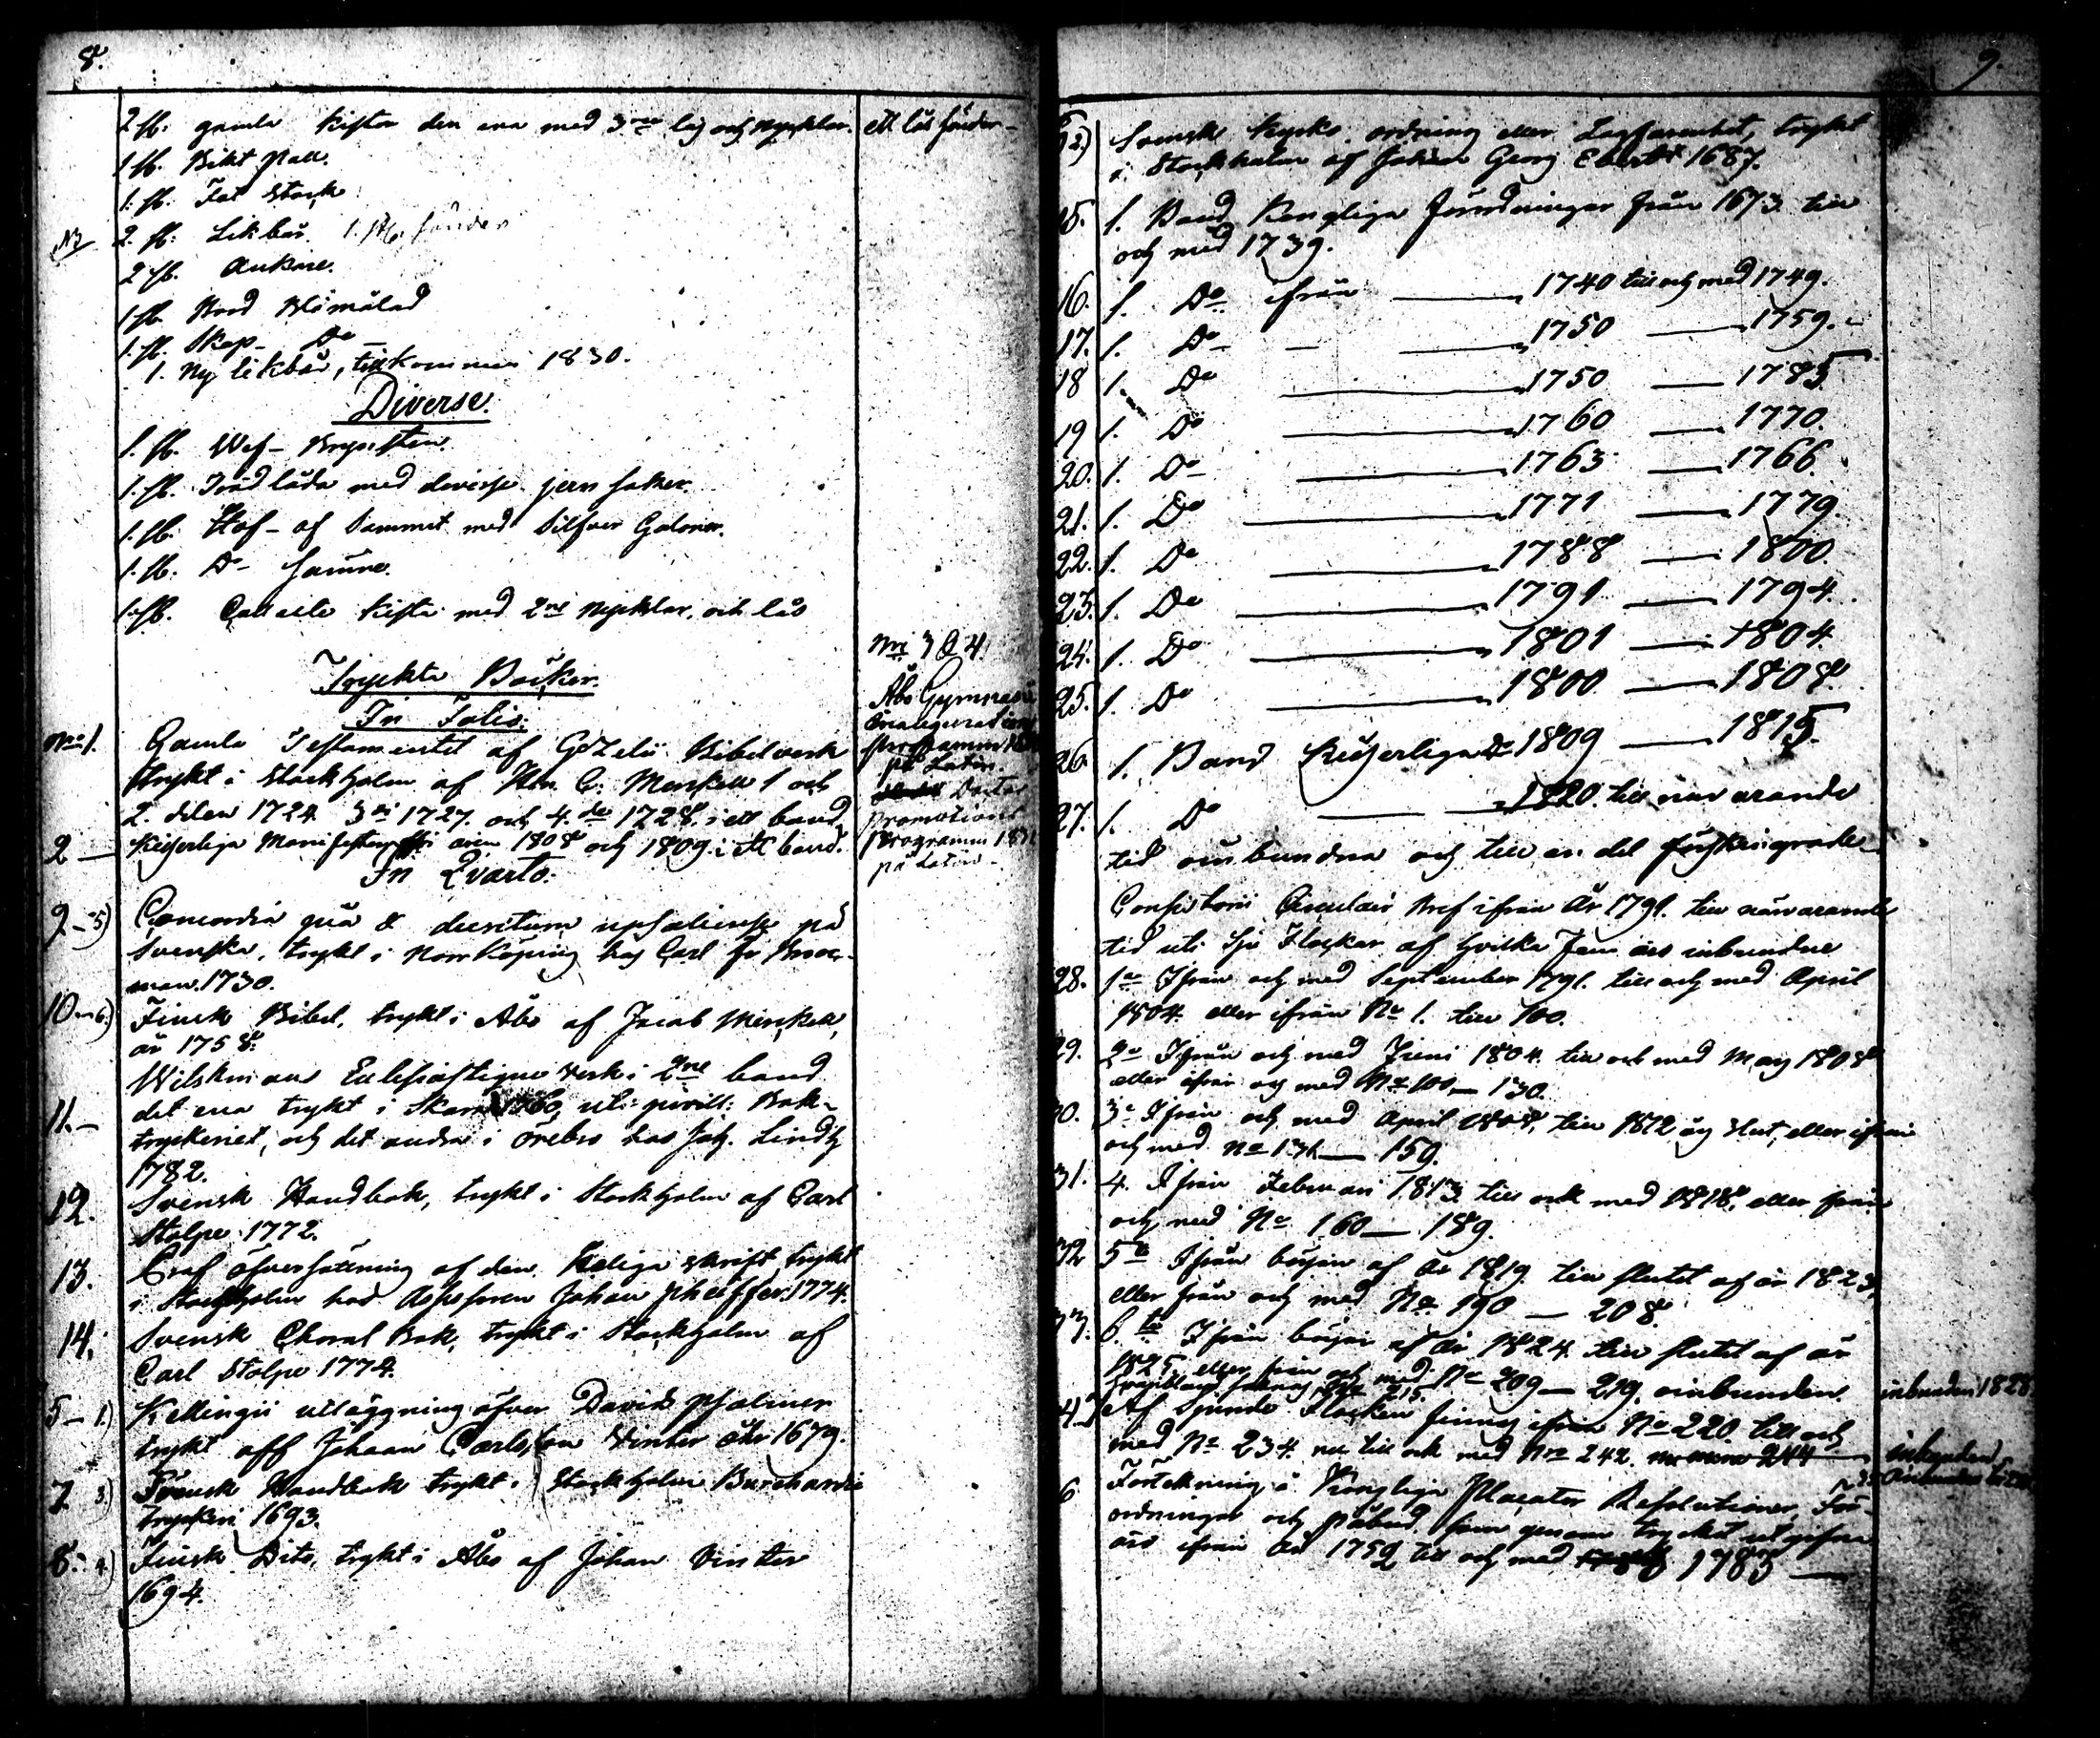 8.
2 st. gamla kistor den ena med 3ne lås och nycklar.
ett lås sönder
1 st. Bikt Pall.
1. st. Fot stock
2. st. Likbår. 1. st. sönder
2 st. Ankare.
1 st. Bord Blåmålad
1. st. Skåp Do
1. Ny likbår, tillkommen 1830.
Diverse.
1. st.
1. st. Trädlåda med diverse jern saker.
1. st. Håf af Sammet med Silfver Galoner.
1. st. Do sämre.
1. st. Collecte kista med 2ne nycklar och lås
Tryckta Böcker.
In Folio.
No 1. Gamla Testamentet af Gezelii Bibelverk
trykt i Stockholm af C. Merckell 1 och
2. delen 1724 3di 1727, och 4.de 1728. i ett band
2 Keijserliga Manifester ifrån åren 1808 och 1809. i ett band.
No 3 & 4
Åbo Gymnasii
inaugurations
programm
på Latin.
Doctor
promotions
programm
på Latin
In Qvarto.
9 5) Concordia pia & decretum upsaliense på
Svenska, trykt i Norrköping hos Carl Fr Broc-
man. 1730.
10 6) Finsk Bibel, trykt i Åbo af Jacob Merckell,
år 1758.
Wilskmans Eclesiastique verk i 2ne band
11. det ena trykt i Skara 1760, uti privill: Bok-
tryckeriet, och det andra i Örebro hos Joh. Lindh
1782.
12. Svensk Handbok, trykt i Stockholm af Carl
Stolpe 1772.
13. Prof öfversättning af den Heliga skrift, trykt
i Stockholm hos Assessoren Johan Pheiffer. 1774.
14. Svensk Choral Bok, trykt i Stockholm af
Carl Stolpe 1774.
5 1) Kellingii utläggning öfver Davids psalmer
trykt aff Johaan Carlsson Winter åhr 1679.
7 3) Svensk Handbok trykt i Stockholm Burchardi
tryckeri 1693.
8. 4) Finsk Dito, trykt i Åbo af Johan Winter
1694.
9.
2) Svensk Kyrko ordning eller Lagfarenhet, trykt
i Stockholm af Johan Georg Eberdt 1687.
15. 1. Band Kongliga Förordningar från 1673 till
och med 1739.
16. 1. Do ifrån 1740 till och med 1749.
17. 1. Do 1750 1759.
18 1. Do 1750 1785
19 1. Do 1760 1770.
20. 1. Do 1763 1766.
21. 1. Do 1771 1779.
22. 1. Do 1788 1800.
23. 1. Do 1791 1794.
24. 1. Do 1801 1804.
25. 1. Do 1800 1808.
26. 1. Band Keijserliga Do 1809 1815.
27. 1. Do 1820. till närvarande
tid oinbundna och till en del
Consistorii Circulair Bref ifrån År 1791. till närvarande
tid uti Sju Flockar af hvilka Fem äro inbundne
28. 1o Ifrån och med September 1791. till och med April
1804. eller ifrån No 1. till 100.
29. 2o Ifrån och med Junii 1804. till och med Maij 1808
eller ifrån och med No 100 130.
30. 3o Ifrån och med April 1808, till 1812 års slut, eller ifrån
och med No 131 159.
31. 4. Ifrån Februari 1813 till och med 1818. eller från
och med No 160 189.
32 5te Ifrån början af År 1819 till slutet af år 1823,
eller från och med No 190 208.
33. 6.te Ifrån början af år 1824. till slutet af år
1825 eller från och med No 209 219. oinbunden
inbunden 1828.
Af Sjunde Flocken finnes ifrån No 220 till och
med No 234. nu till och med No 242.
6 Förtekning å Kongliga Placater Resolutioner För-
ordningar och påbud, som genom trycket utgifne
äro ifrån År 1752 till och med 1783